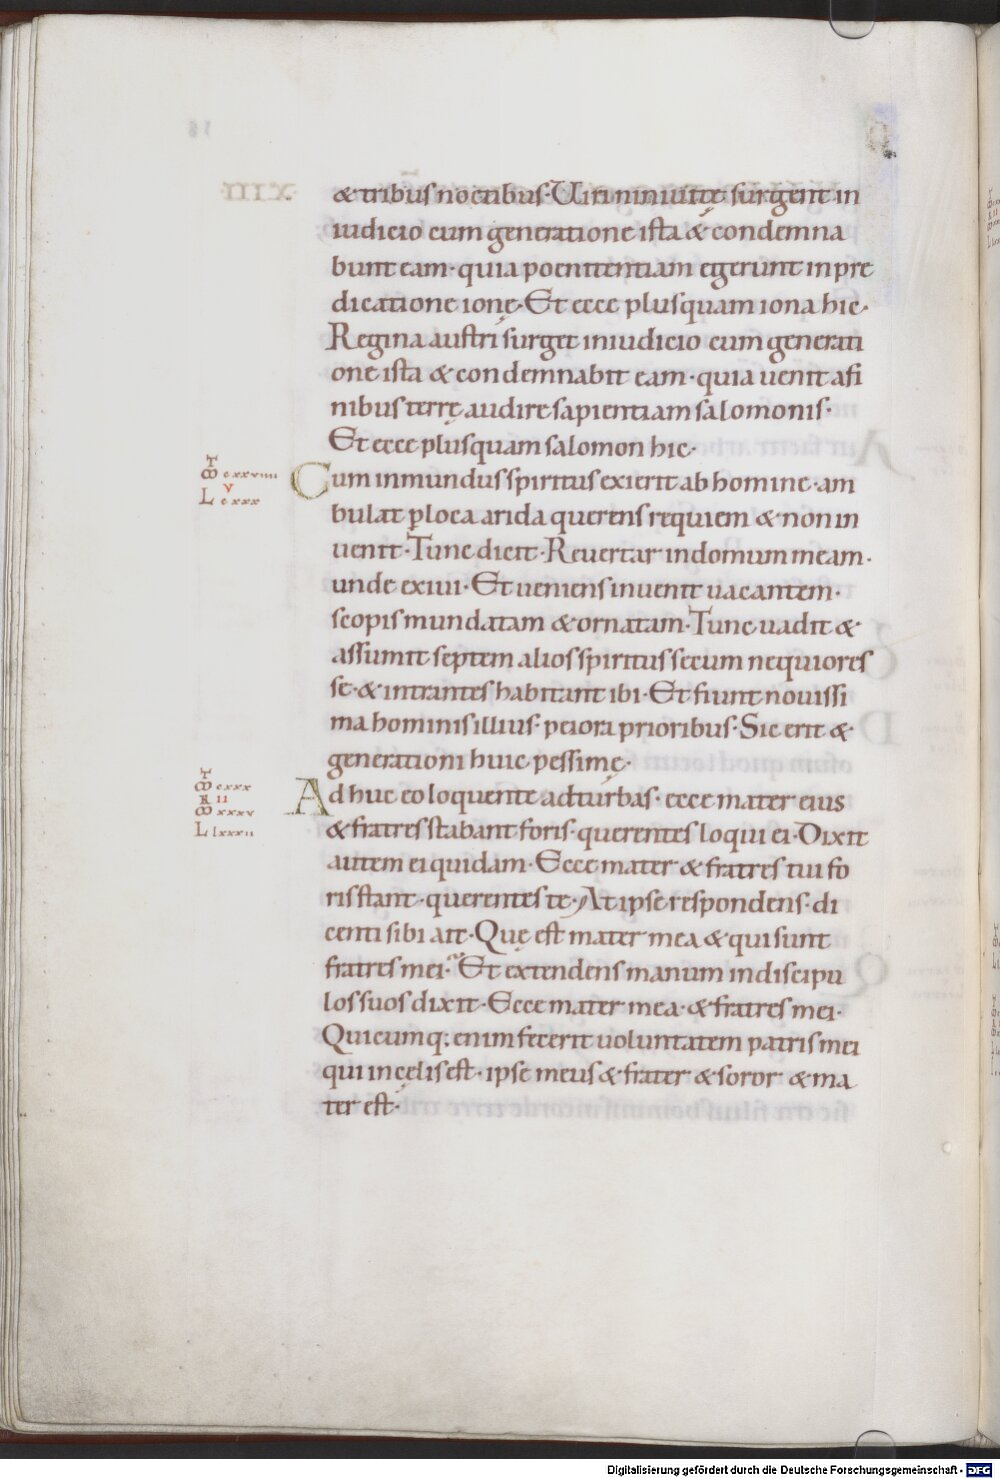 & tribus noctibus· Uiri niniuitę surgent in
iudicio cum generatione ista & condemna
bunt eam· quia poenitentiam egerunt in pre
dicatione ionę· Et ecce plusquam iona hic·
Regina austri surget in iudicio cum generati
one ista & condemnabit eam· quia uenit a fi
nibus terrę audire sapientiam salomonis·
Et ecce plusquam salomon hic·
Cum inmundus spiritus exierit ab homine· am
bulat ꝑ loca arida querens requiem & non in
uenit· Tunc dicit· Reuertar in domum meam·
unde exiui· Et ueniens inuenit uacantem·
scopis mundatam & ornatam· Tunc uadit &
assumit septem alios spiritus secum nequiores
se· & intrantes habitant ibi· Et fiunt nouissi
ma hominis illius· peiora prioribus· Sic erit &
generationi huic pessimę·
Adhuc eo loquente ad turbas· ecce mater eius
& fratres stabant foris· querentes loqui ei· Dixit
autem ei quidam· Ecce mater & fratres tui fo
ris stant· querentes te· At ipse respondens· di
centi sibi ait· Quę est mater mea & qui sunt
fratres mei? Et extendens manum in discipu
los suos dixit· Ecce mater mea· & fratres mei·
Quicumq; enim fecerit uoluntatem patris mei
qui in cęlis est· ipse meus & frater & soror & ma
ter est·
cxxviiii
v
L cxxx
cxxx
II
xxxv
L lxxxii
Digitalisierung gefördert durch die Deutsche Forschungsgemeinschaft - DFG